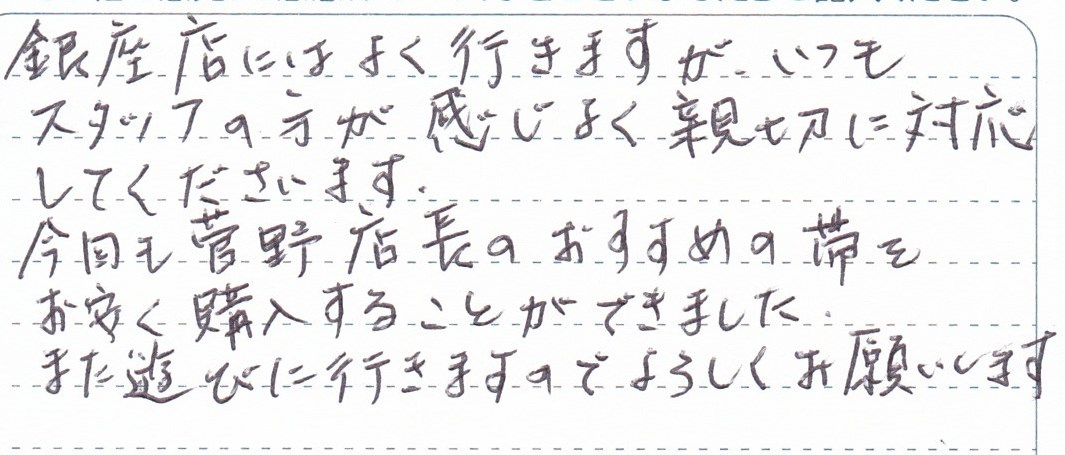 銀座店にはよく行きますが、いつも
スタッフの方が感じよく親切に対応
してくださいます。
今回も菅野店長のおすすめの帯を
お安く購入することができました。
また遊びに行きますのでよろしくお願いします